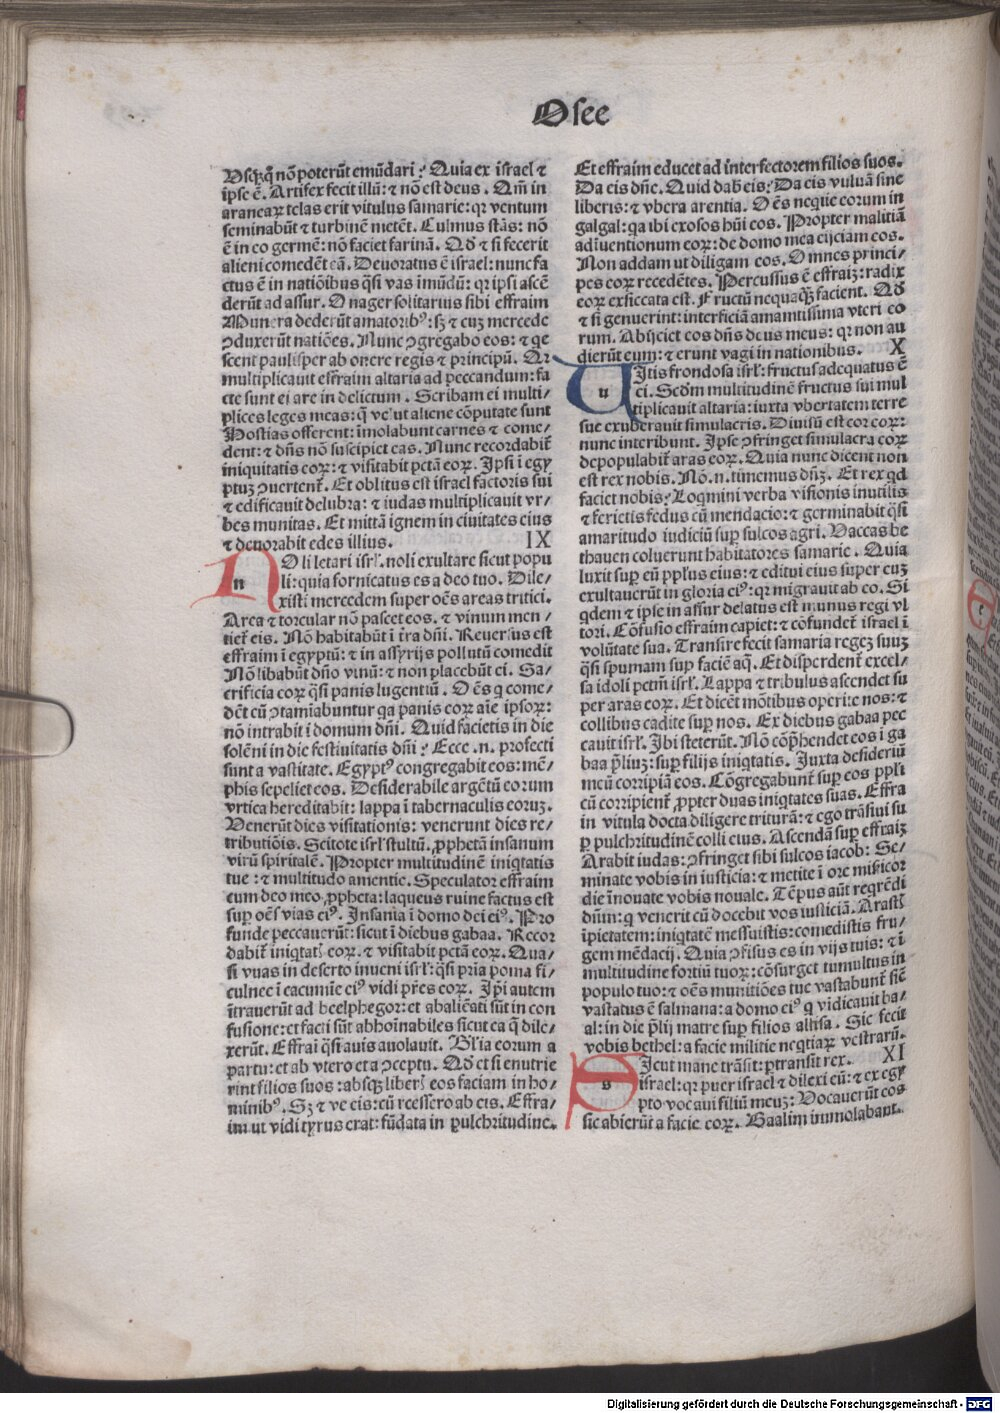 Osee
Usq̃quo nõ poterũt emũdari? Quia ex israel ⁊
ipse ē. Artifex fecit illũ: ⁊ nõ est deus. Qm̃ in
aranearꝝ telas erit vitulus samarie: qꝛ ventum
seminabũt ⁊ turbinē metēt. Culmus stãs: nõ
ē in eo germē: nõ faciet farinã. Qđ ⁊ si fecerit
alieni comedēt eã. Deuoratus ē israel: nunc fa
ctus ē in natiõibus q̃si vas imũdũ: qꝛ ipsi ascē
derũt ad assur. Onager solitarius sibi effraim
Munera dederũt amatoribꝰ: sꝫ ⁊ cuꝫ mercede
ꝯduxerũt natiões. Nunc ꝯgregabo eos: ⁊ qe
scent paulisper ab onere regis ⁊ principũ. Qꝛ
multiplicauit effraim altaria ad peccandum: fa
cte sunt ei are in delictum. Scribam ei multi⸗
plices leges meas: q̃ veꝰut aliene cõputate sunt
Hostias offerent: imolabunt carnes ⁊ come⸗
dent: ⁊ dñs nõ suscipiet eas. Nunc recordabit̃
iniquitatis eoꝝ: ⁊ visitabit pctã eoꝝ. Ipsi ĩ egy
ptuꝫ ꝯuertent̃. Et oblitus est israel factoris sui
⁊ edificauit delubra: ⁊ iudas multiplicauit vr⸗
bes munitas. Et mittã ignem in ciuitates eius
⁊ deuorabit edes illius. IX
n Oli letari isrl̃. noli exultare sicut popu
li: quia fornicatus es a deo tuo. Dile⸗
xisti mercedem super oēs areas tritici.
Area ⁊ torcular nõ pascet eos. ⁊ vinum men⸗
tiet̃ eis. Nõ habitabũt ĩ t̃ra dñi. Reuersus est
effraim ĩ egyptũ: ⁊ in assyrijs pollutũ comedit
Nõ libabũt dño vinũ: ⁊ non placebũt ei. Sa⸗
crificia eoꝝ q̃si panis lugentiũ. Oēs q come⸗
dēt eũ ꝯtamĩabuntur qa panis eoꝝ aĩe ipsoꝝ:
nõ intrabit ĩ domum dñi. Quid facietis in die
solēni in die festiuitatis dñi? Ecce .n. profecti
sunt a vastitate. Egyptꝰ congregabit eos: mē⸗
phis sepeliet eos. Desiderabile argētũ eorum
vrtica hereditabit: lappa ĩ tabernaculis eoruꝫ.
Venerũt dies visitationis: venerunt dies re⸗
tributiõis. Scitote isrl̃ stultũ. ꝓphetã insanum
virũ spiritalē. Propter multitudinē iniqtatis
tue: ⁊ multitudo amentie. Speculator effraim
cum deo meo ꝓpheta: laqueus ruine factus est
suꝑ oēs vias eiꝰ. Insania ĩ domo dei eiꝰ. Pro
funde peccauerũt: sicut ĩ diebus gabaa. Recor
dabit̃ iniqtat̃ eoꝝ. ⁊ visitabit pctã eoꝝ. Qua⸗
si vuas in deserto inueni isrl̃: q̃si pria poma fi⸗
culnee ĩ cacumĩe eiꝰ vidi pr̃es eoꝝ. Ip̃i autem
ĩtrauerũt ad beelphegor: et abaliēati sũt in con
fusione: et facti sũt abhoĩnabiles sicut ea q̃ dile⸗
xerũt. Effrai q̃si auis auolauit. Gl̃ia eorum a
partu: et ab vtero et a ꝯceptu. Qđ et si enutrie
rint filios suos: absqꝫ liber̃ eos faciam in ho⸗
minibꝰ. Sꝫ ⁊ ve eis: cũ recessero ab eis. Effra⸗
im ut vidi tyrus erat: fũdata in pulchritudine.
Et effraim educet ad interfectorem filios suos.
Da eis dñe. Quid dabis eis? Da eis vuluã sine
liberis: ⁊ vbera arentia. Oēs neqtie eorum in
galgal: qa ibi exosos hũi eos. Propter malitiã
adĩuentionum eoꝝ: de domo mea eijciam eos.
Non addam ut diligam eos. Omnes princi⸗
pes eoꝝ recedētes. Percussus ē effraiꝫ: radix
eoꝝ exsiccata est. Fructũ nequaq̃ꝫ facient. Qđ
⁊ si genuerint: interficiã amantissima vteri eo
rum. Abijciet eos dñs deus meus: qꝛ non au
dierũt eum: ⁊ erunt vagi in nationibus. X
u Itis frondosa isrl̃: fructus adequatus ē
ei. Scđm multitudinē fructus sui mul
tiplicauit altaria: iuxta vbertatem terre
sue exuberauit simulacris. Diuisũ est cor eoꝝ:
nunc interibunt. Ipse ꝯfringet simulacra eoꝝ
depopulabit̃ aras eoꝝ. Quia nunc dicent non
est rex nobis. Nõ .n. timemus dñꝫ. Et rex qd
faciet nobis? Loqmini verba visionis inutilis
⁊ ferietis fedus cũ mendacio: ⁊ germinabit q̃si
amaritudo iudiciũ suꝑ sulcos agri. Vaccas be
thauen coluerunt habitatores samarie. Quia
luxit suꝑ eũ pp̃lus eius: ⁊ editui eius super euꝫ
exultauerũt in gloria eiꝰ: qꝛ migrauit ab eo. Si
qdem ⁊ ipse in assur delatus est munus regi vl
tori. Cõfusio effraim capiet: ⁊ cõfundet̃ israel ĩ
volũtate sua. Transire fecit samaria regeꝫ suuꝫ
q̃si spumam suꝑ faciē aq̃. Et disperdent̃ excel⸗
sa idoli pctm̃ isrl̃. Lappa ⁊ tribulus ascendet su
per aras eoꝝ. Et dicēt mõtibus operite nos: ⁊
collibus cadite suꝑ nos. Ex diebus gabaa pec
cauit isrl̃. Ibi steterũt. Nõ cõp̃hendet eos ĩ ga
baa p̃liuꝫ: suꝑ filijs iniqtatis. Juxta desideriũ
meũ corripiã eos. Cõgregabunt̃ suꝑ eos pp̃li
cũ corripient̃ ꝓpter duas iniqtates suas. Effra
im vitula docta diligere trituraꝫ: ⁊ ego trãsiui su
ꝑ pulchritudinē colli eius. Ascendã suꝑ effraiꝫ
Arabit iudas: ꝯfringet sibi sulcos iacob. Se⸗
minate vobis in iusticia: ⁊ metite ĩ ore mis̃icor
die ĩnouate vobis nouale. Tēpus aũt reqrēdi
dñum: q venerit cũ docebit vos iusticiã. Arast̃
ĩpietatem: iniqtatē messuistis: comedistis fru⸗
gem mēdacij. Quia ꝯfisus es in vijs tuis: ⁊ ĩ
multitudine fortiũ tuoꝝ: cõsurget tumultus in
populo tuo: ⁊ oēs munitiões tue vastabunt̃ sic̃
vastatus ē salmana: a domo eiꝰ q vidicauit ba⸗
al: in die p̃lij matre suꝑ filios allisa. Sic fecit
vobis bethel: a facie militie neqtiaꝝ vestrarũ.
s Icut mane trãsit: ꝑtransit rex. XI
israel: qꝛ puer israel ⁊ dilexi eũ: ⁊ ex egy
pto vocaui filiũ meuꝫ: Vocauerũt eos
sic abierũt a facie eoꝝ. Baalim immolabant.
Digitalisierung gefördert durch die Deutsche Forschungsgemeinschaft - DFG